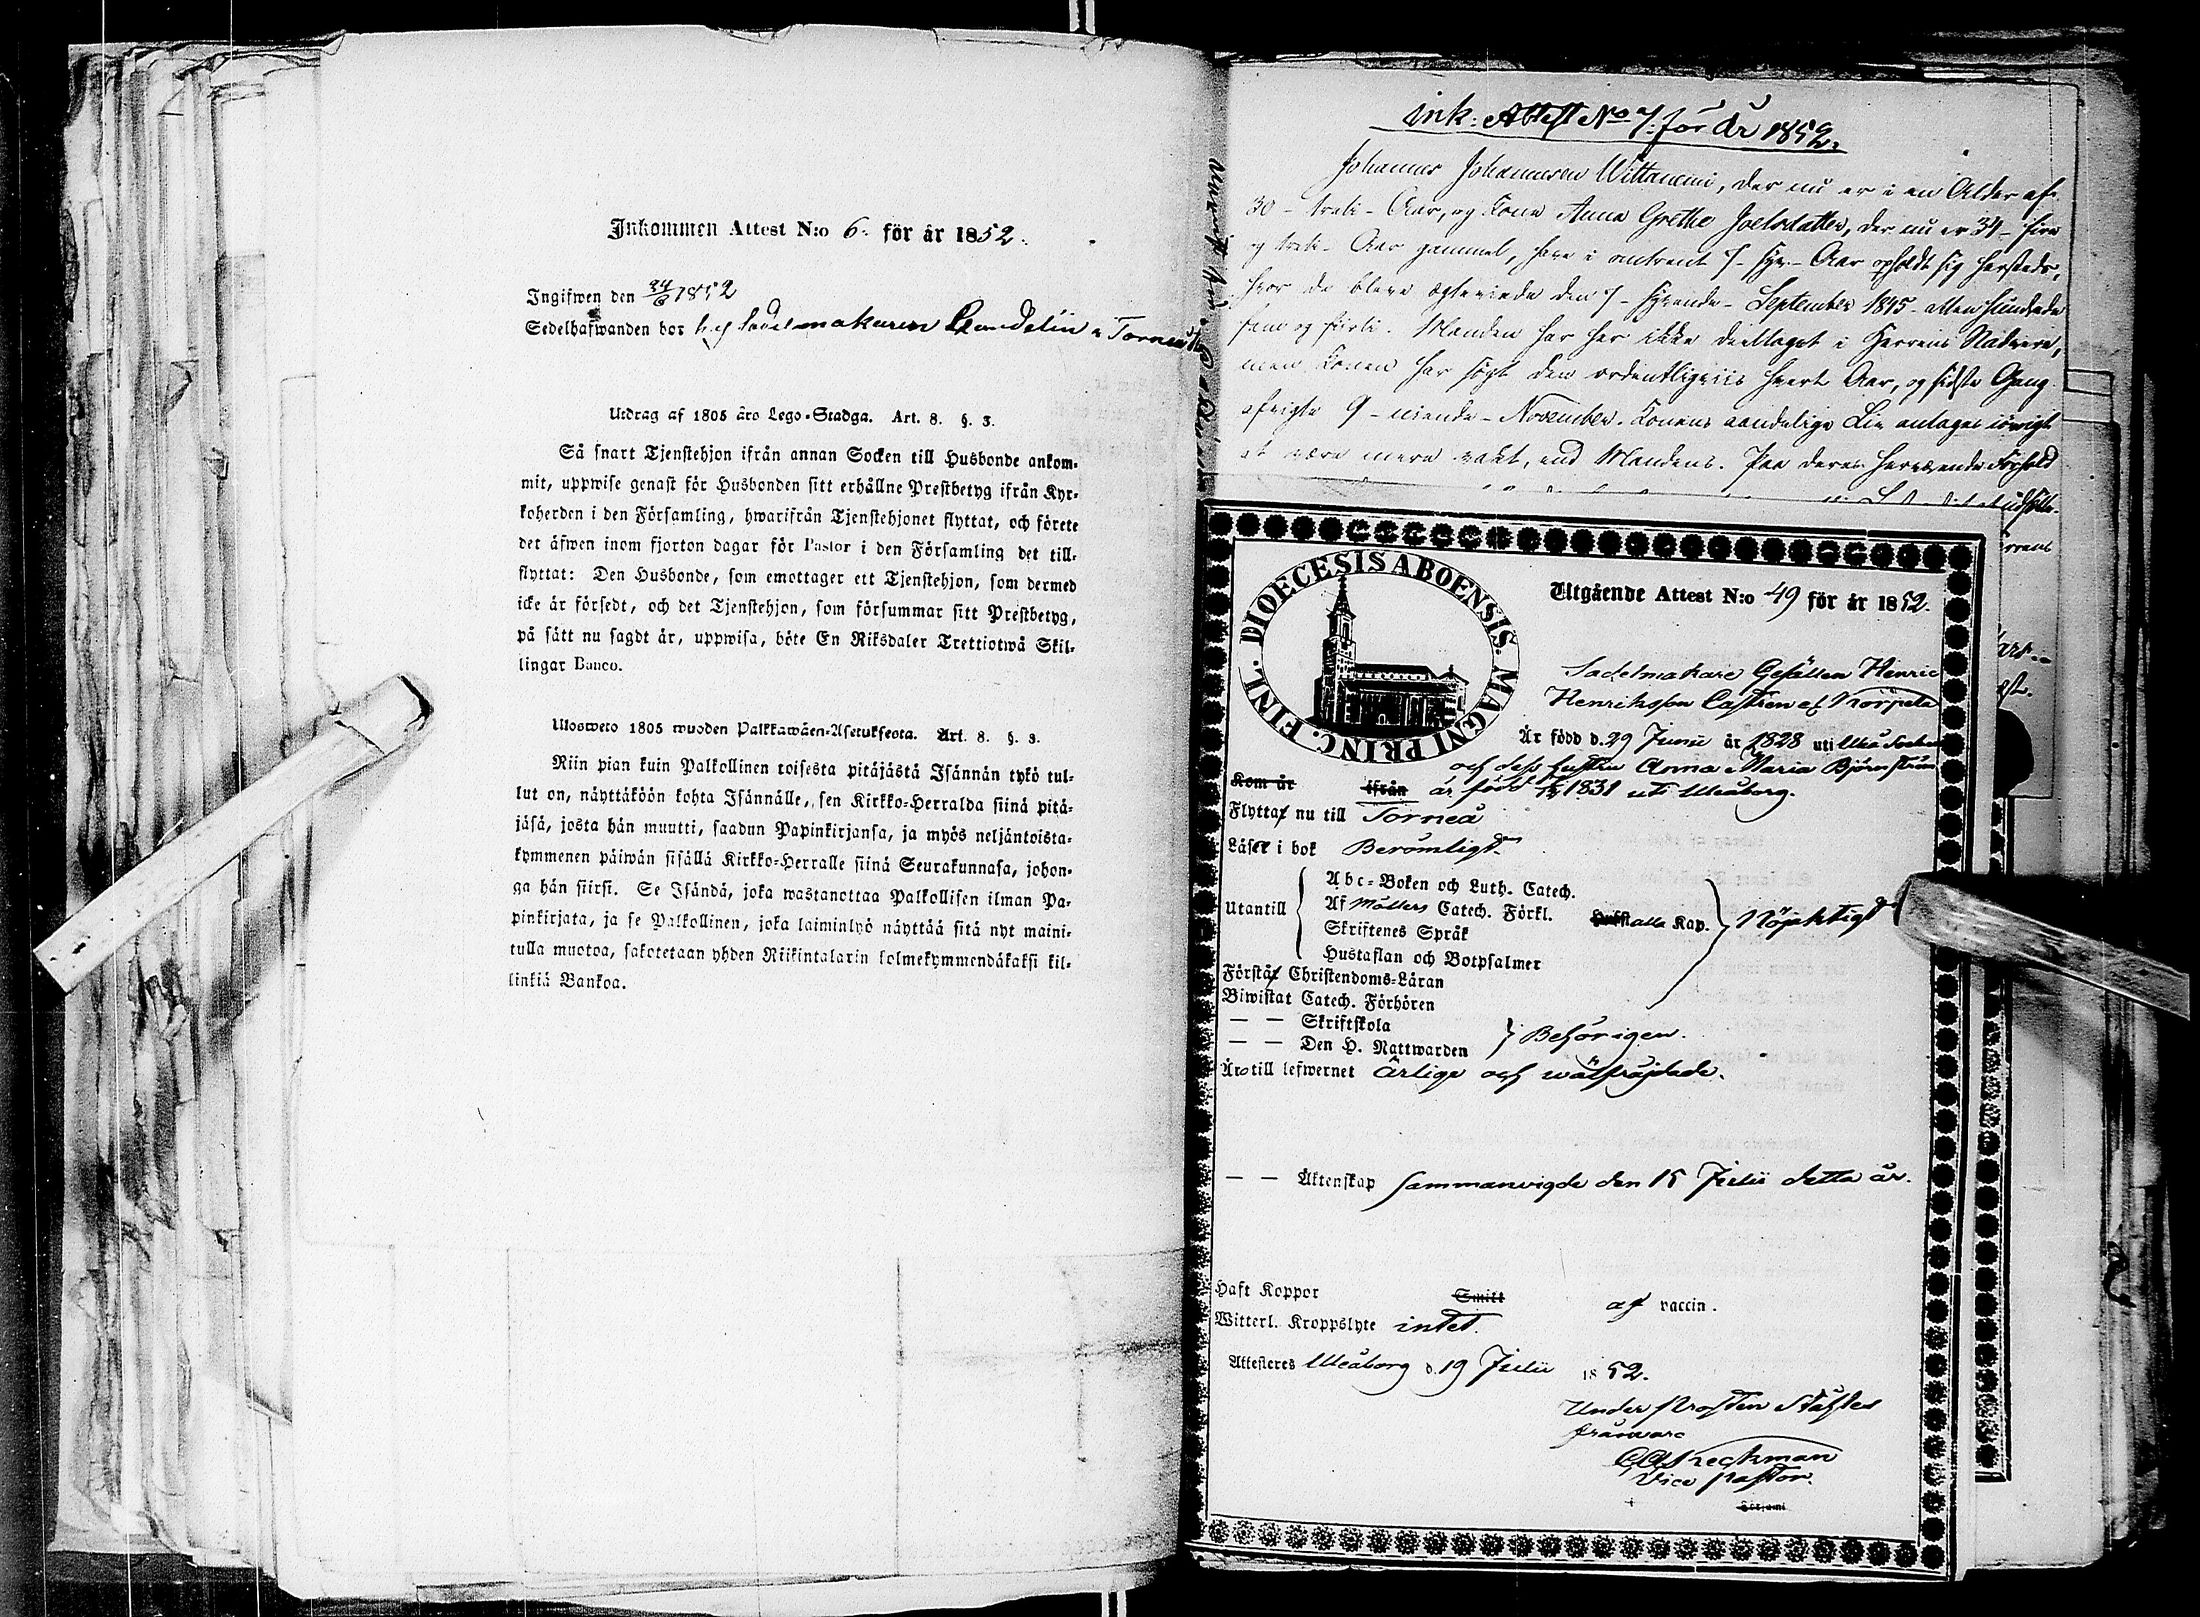 Inkommen Attest N:o 6. för år 1852.
Ingifwen den 24/6 1852
Sedelhafwanden bor hos sadelmakaren Sandelin i Torneå
Utdrag af 1805 års Lego-Stadga. Art. 8. §. 3.
Så snart Tjenstehjon ifrån annan Socken till Husbonde ankom-
mit, uppwise genast för Husbonden sitt erhållne Prestbetyg ifrån Kyr-
koherden i den Församling, hwarifrån Tjenstehjonet flyttat, och förete
det äfwen inom fjorton dagar för Pastor i den Församling det till-
flyttat: Den Husbonde, som emottager ett Tjenstehjon, som dermed
icke är försedt, och det Tjenstehjon, som försummar sitt Prestbetyg,
på sätt nu sagdt är, uppwisa, böte En Riksdaler Trettiotwå Skil-
lingar Banco.
Uloswetо 1805 wuoden Palkkawäen-Asetuksesta. Art. 8. §. 3.
Niin pian kuin Palkollinen toisesta pitäjästä Isännän tykö tul-
lut on, näyttäköön kohta Isännälle, sen Kirkko-Herralda siinä pitä-
jäsä, josta hän muutti, saadun Papinkirjansa, ja myös neljäntoista-
kymmenen päiwän sisällä Kirkko-Herralle siinä Seurakunnasa, johon-
ga hän siirsi. Se Isändä, joka wastanottaa Palkollisen ilman Pa-
pinkirjata, ja se Palkollinen, joka laiminlyö näyttää sitä nyt maini-
tulla muotoa, sakotetaan yhden Riikintalarin kolmekymmendäkaksi kil-
linkiä Bankoa.
ink: Attest No 7. för år 1852.
Johannes Johannesen Wittaniemi, der nu er i en Alder af
30 - treti - Aar, og Kone Anna Grethe Joelsdatter, der nu er 34 - fire
og treti - Aar gammel, have i omtrent 7 - syv - Aar opholdt sig hersteds,
hvor de bleve ægteviede den 7 - syvende - September 1845 - atten hundrede
fem og førti. Manden har her ikke deeltaget i Herrens Nadvere,
men Konen har søgt den ordentligviis hvert Aar, og sidste Gang
afvigte 9 - niende - November. Konens aandelige Liv antages iøvrigt
at være mere vakt, end Mandens. Paa deres herværende Forhold
DIOECESIS ABOENSIS. MAGNI PRINC. FINL.
Utgående Attest N:o 49 för år 1852.
Sadelmakare Gesällen Henric
Henriksson Castren af
Är född d. 29 Junii år 1828 uti Uleå Socken
och dess hustru Anna Maria Björnström
Kom år ifrån är född 1831 uti Uleåborg.
Flytta nu till Torneå
Läser i bok Berömligt
Utantill
Abc-Boken och Luth. Catech.
Af Möllers Catech. Förkl. alla Kap. Nöjaktigt
Skriftenes Språk
Hustaflan och Botpsalmer
Förstå Christendoms-Läran
Biwistat Catech. Förhören
— — Skriftskola
— — Den H. Nattwarden Behörigen.
Äro till lefwernet ärlige och wälfräjdade.
— — Äktenskap sammanvigde den 15 Julii detta år.
Haft Koppor Smitt af vaccin.
Witterl. Kroppslyte intet.
Attesteres Uleåborg d. 19 Julii 1852.
Under Prosten Ståhles
frånvaro
Vice pastor.